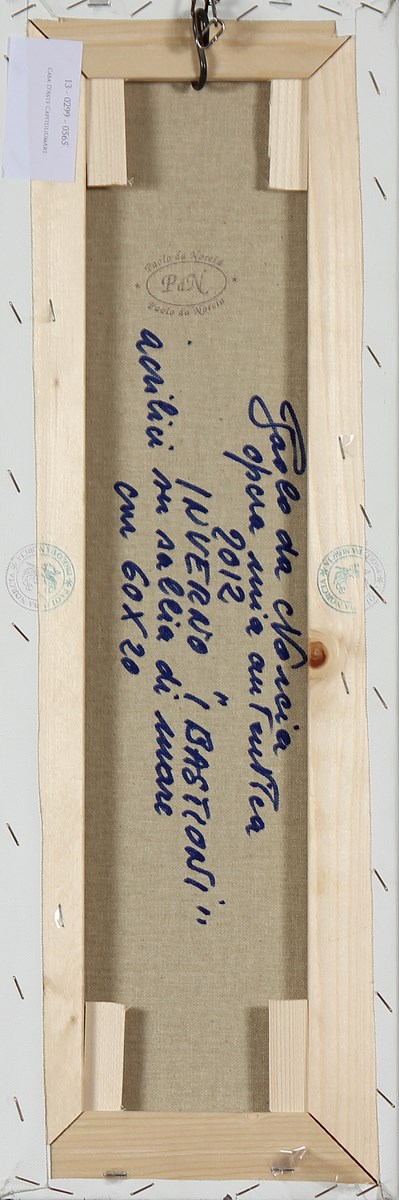 13 - 0299 - 0565
CASA D'ASTE CAPITOLIUMART
Paolo da Norcia
PdN
Paolo da Norcia
Paolo da Norcia
opera mia autentica
2012
INVERNO "I BASTIONI"
acrilici su sabbia di mare
cm 60X20